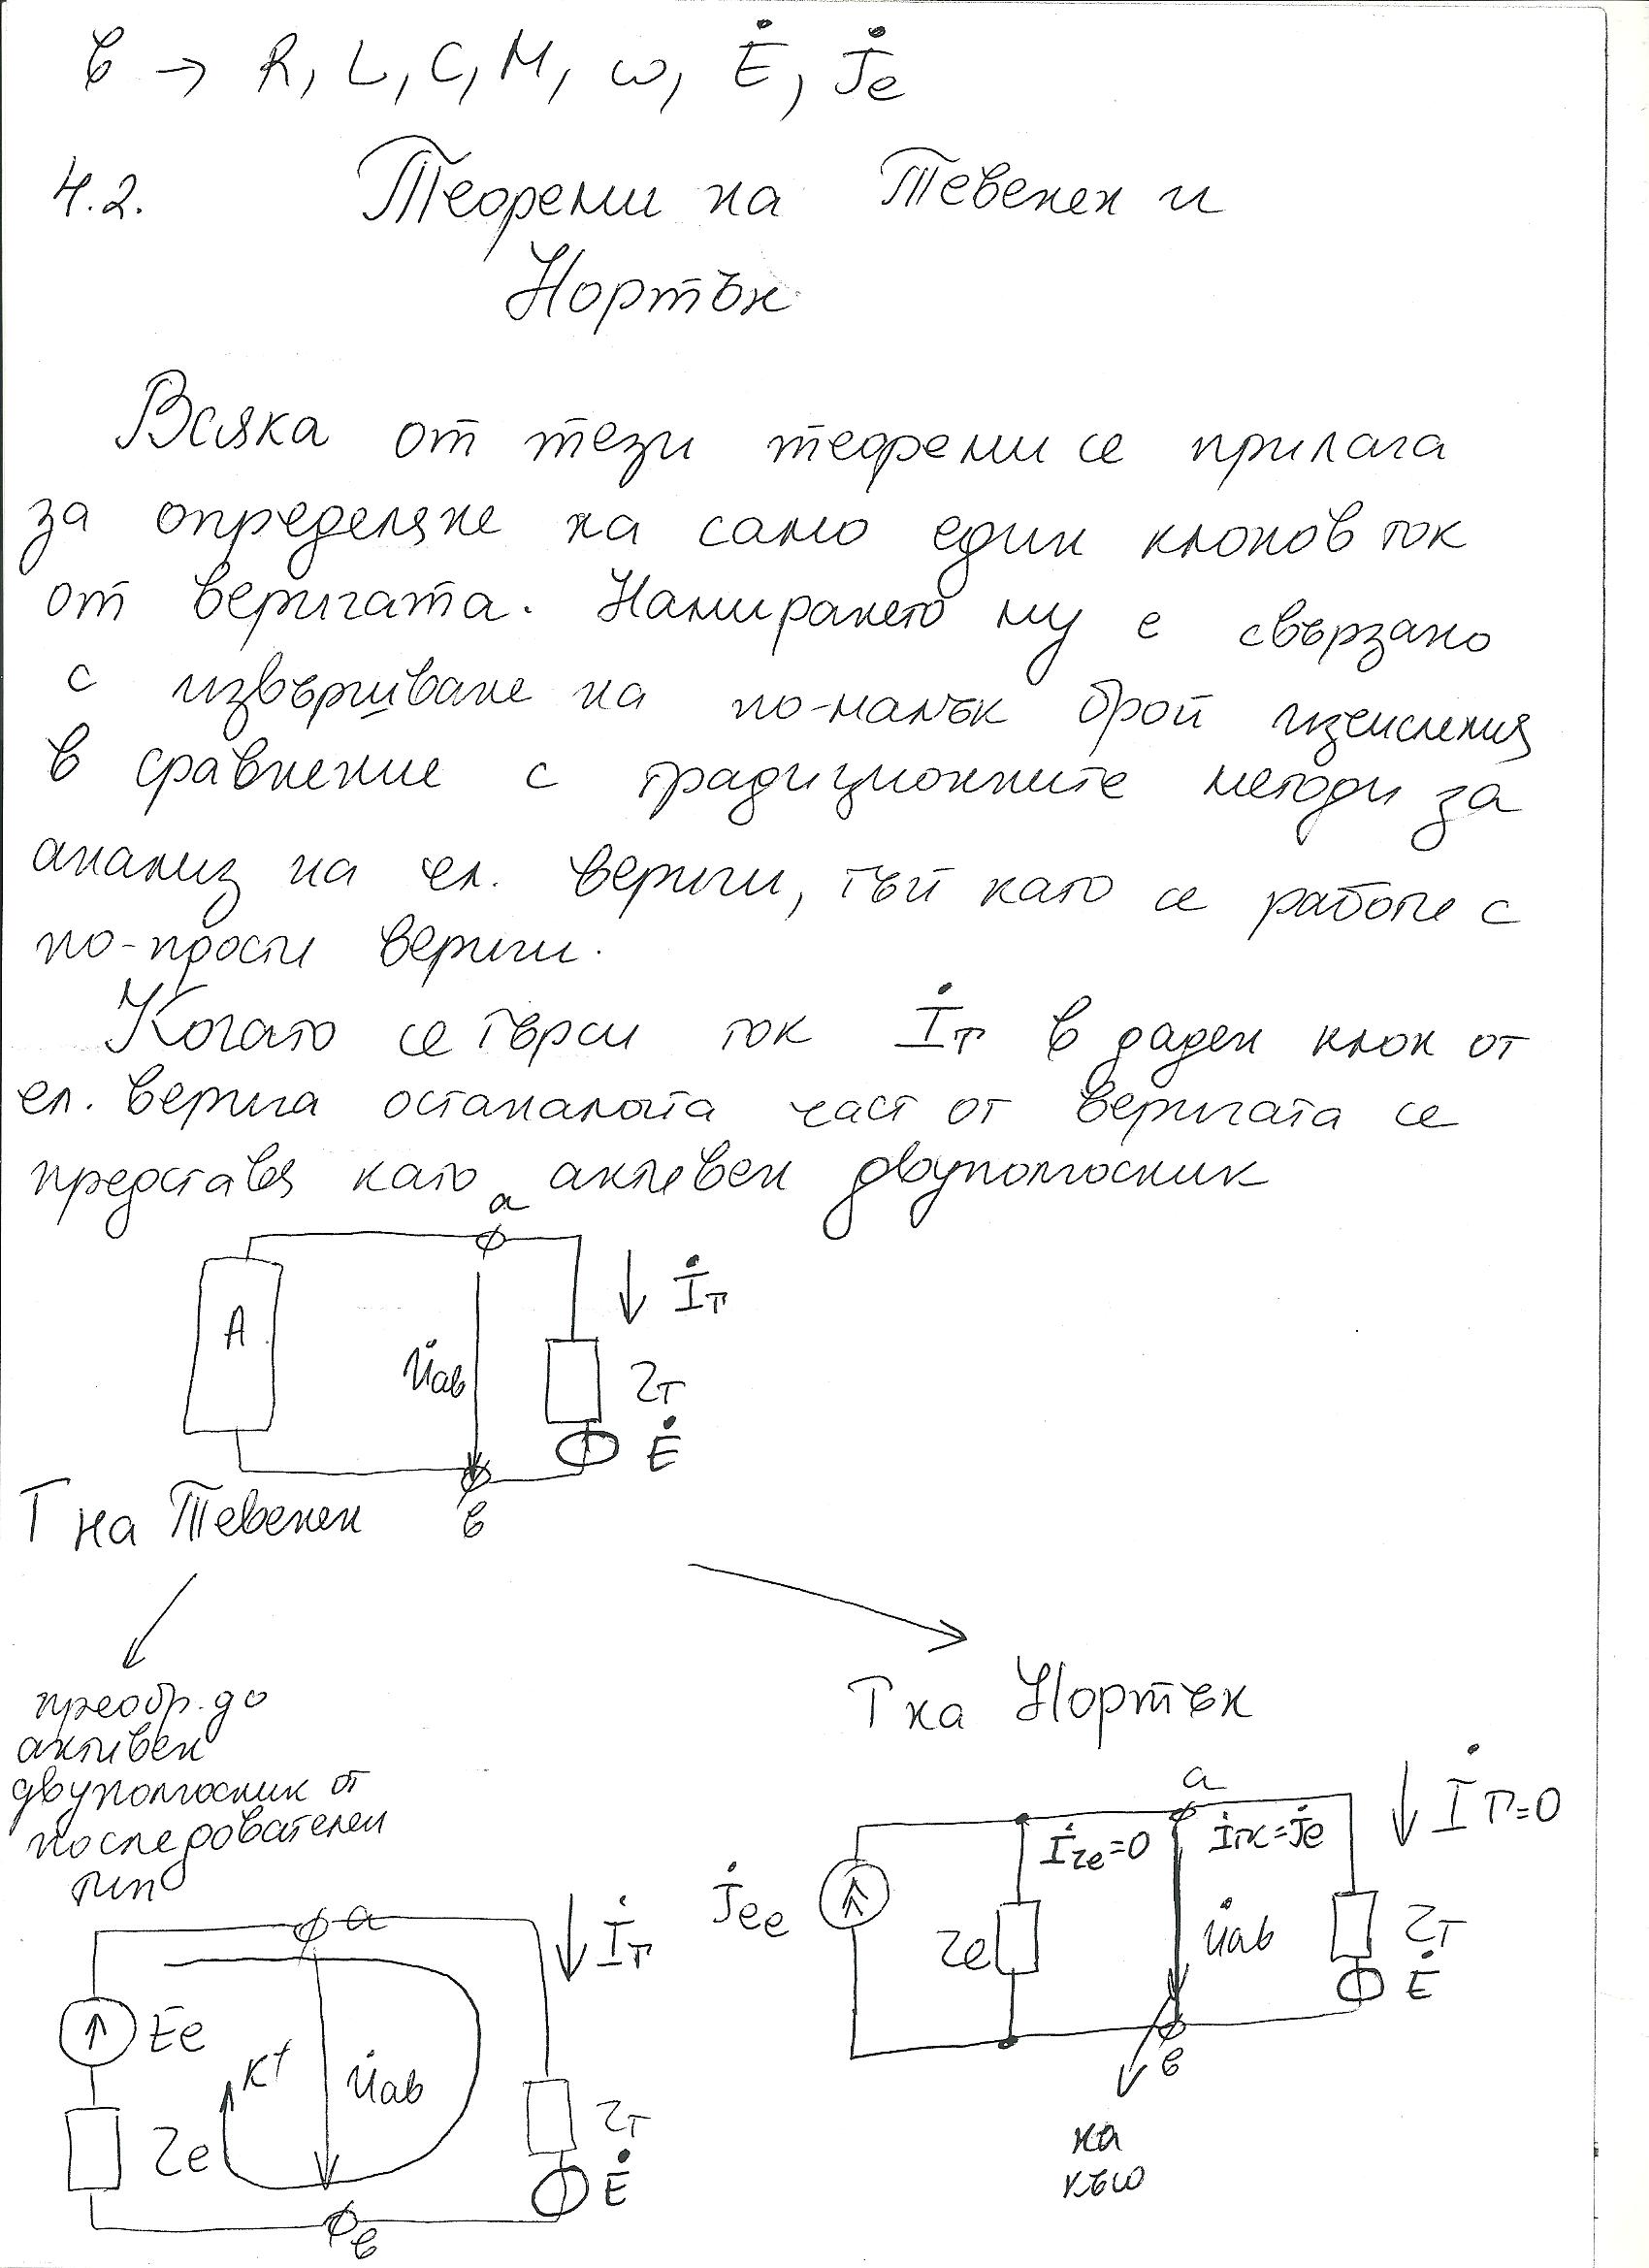 в → R, L, C, M, ω, Ė, J̇e
4.2. Теореми на Тевенен и
Нортън
Всяка от тези теореми се прилага
за определяне на само един клонов ток
от веригата. Намирането му е свързано
с извършване на по-малък брой изчисления
в сравнение с традиционните методи за
анализ на ел. вериги, тъй като се работи с
по-прости вериги.
Когато се търси ток İт в даден клон от
ел. верига останалата част от веригата се
представя като активен двуполюсник
a
A
U̇ab
İт
Zт
Ė
в
Т на Тевенен
преобр. до
активен
двуполюсник от
последователен
тип
Т на Нортън
a
İт=0
İZe=0
İтк=J̇e
J̇ee
Ze
U̇ab
Zт
Ė
в
на
късо
a
İт
Ee
K+
U̇ab
Ze
Zт
Ė
в